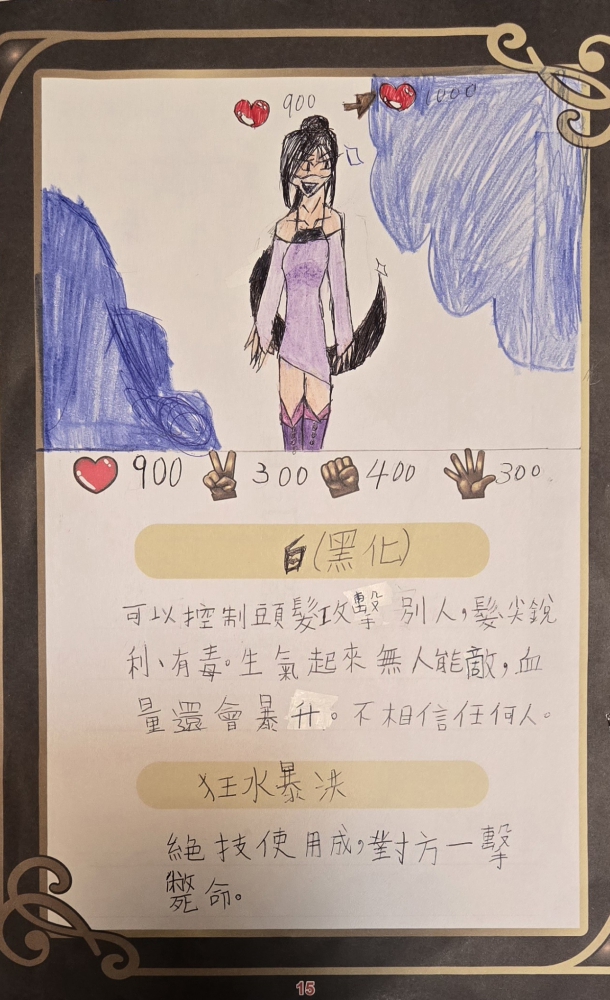 900 1000
900 300 400 300
白(黑化)
可以控制頭髮攻擊別人,髮尖銳
利、有毒。生氣起來無人能敵,血
量還會暴升。不相信任何人。
狂水暴洪
絕技使用成,對方一擊
斃命。
15